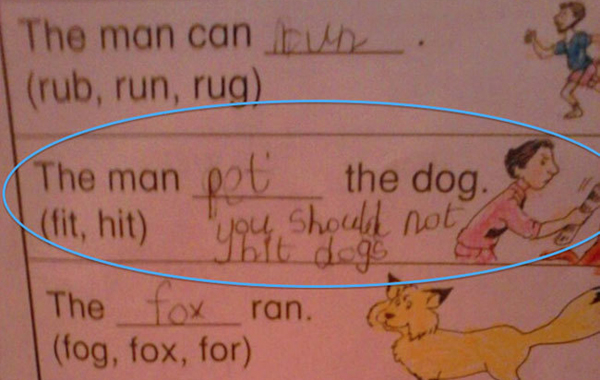 The man can run.
(rub, run, rug)
The man pet the dog.
(fit, hit) you should not
hit dogs
The fox ran.
(fog, fox, for)